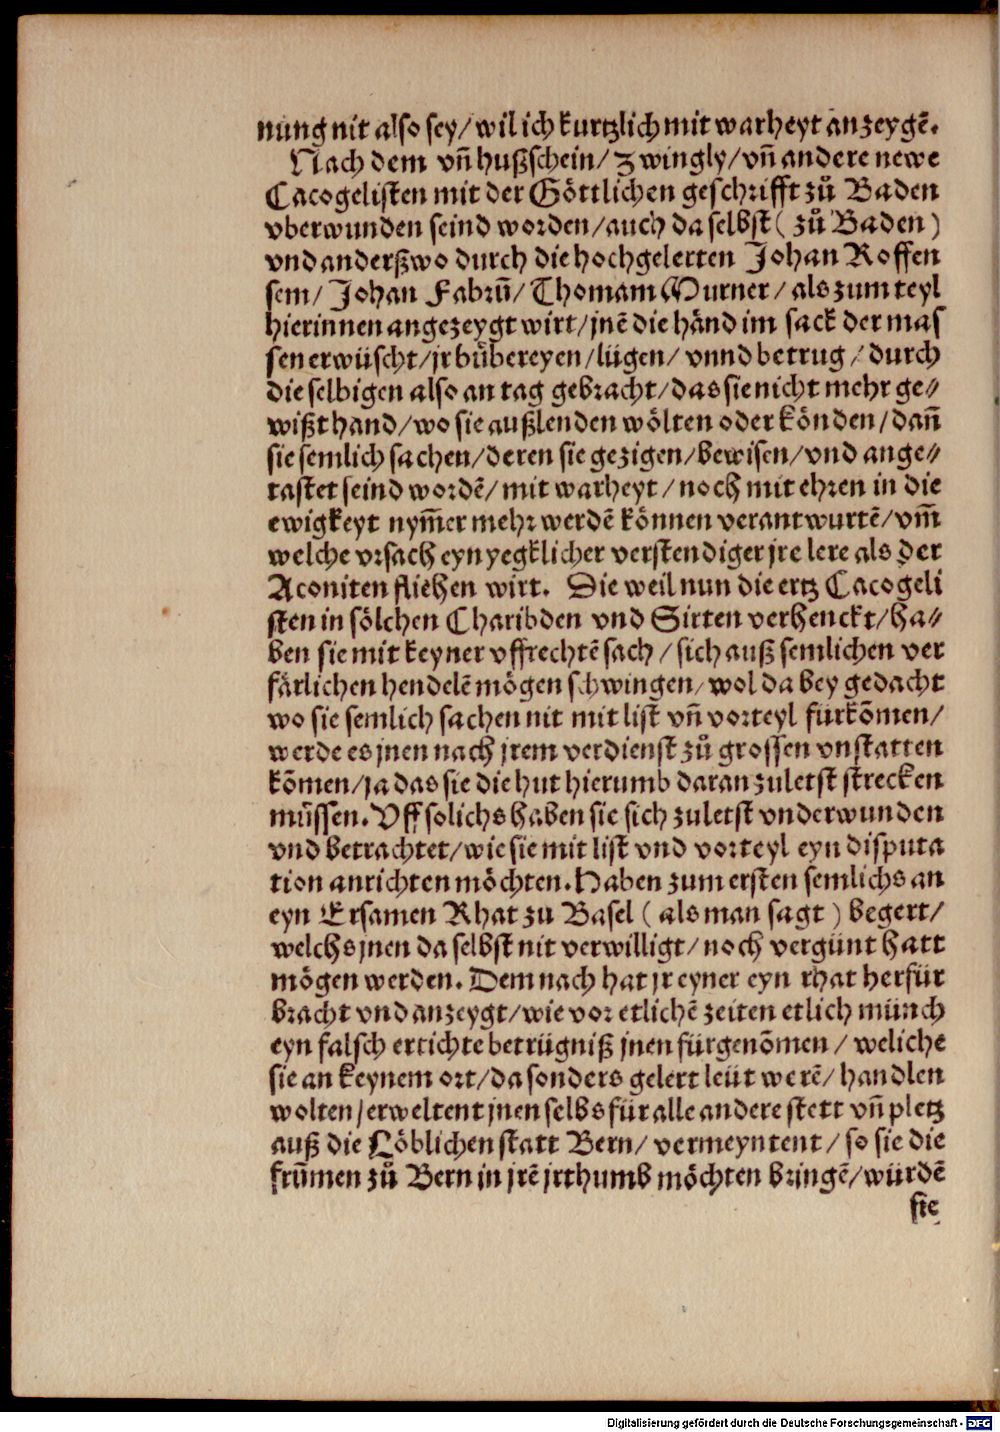 nung nit also sey/ wil ich kurtzlich mit warheyt anzeygẽ.
Nach dem vñ hußschein/ Zwingly/ vñ andere newe
Cacogelisten mit der Göttlichen geschrifft zů Baden
vberwunden seind worden/ auch da selbst ( zů Baden )
vnd anderßwo durch die hochgelerten Johan Roffen
sem/ Johan Fabrũ/ Thomam Murner/ als zum teyl
hierinnen angezeygt wirt/ jnẽ die händ im sack der mas
sen erwüscht/ jr bůbereyen/ lügen/ vnnd betrug/ durch
die selbigen also an tag gebracht/ das sie nicht mehr ge⸗
wißt hand/ wo sie außlenden wölten oder könden/ dañ
sie semlich sachen/ deren sie gezigen/ bewisen/ vnd ange⸗
tastet seind wordẽ/ mit warheyt/ noch mit ehren in die
ewigkeyt nym̃er mehr werdẽ können verantwurtẽ/ vm̃
welche vrsach eyn yegklicher verstendiger jre lere als der
Aconiten fliehen wirt. Die weil nun die ertz Cacogeli
sten in sölchen Charibden vnd Sirten verhenckt/ ha⸗
ben sie mit keyner vffrechtẽ sach/ sich auß semlichen ver
färlichen hendelẽ mögen schwingen/ wol da bey gedacht
wo sie semlich sachen nit mit list vñ vorteyl fürkõmen/
werde es jnen nach jrem verdienst zů grossen vnstatten
kõmen/ ja das sie die hut hierumb daran zuletst strecken
müssen. Vff solichs haben sie sich zuletst vnderwunden
vnd betrachtet/ wie sie mit list vnd vorteyl eyn disputa
tion anrichten möchten. Haben zum ersten semlichs an
eyn Ersamen Rhat zu Basel ( als man sagt ) begert/
welchs jnen da selbst nit verwilligt/ noch vergünt hatt
mögen werden. Dem nach hat jr eyner eyn rhat herfür
bracht vnd anzeygt/ wie vor etlichẽ zeiten etlich münch
eyn falsch ertichte betrügniß jnen fürgenõmen/ weliche
sie an keynem ort/ da sonders gelert leüt werẽ/ handlen
wolten/ erweltent jnen selbs für alle andere stett vñ pletz
auß die Löblichen statt Bern/ vermeyntent/ so sie die
frũmen zů Bern in jrẽ jrthumb möchten bringẽ/ würdẽ
sie
Digitalisierung gefördert durch die Deutsche Forschungsgemeinschaft - DFG